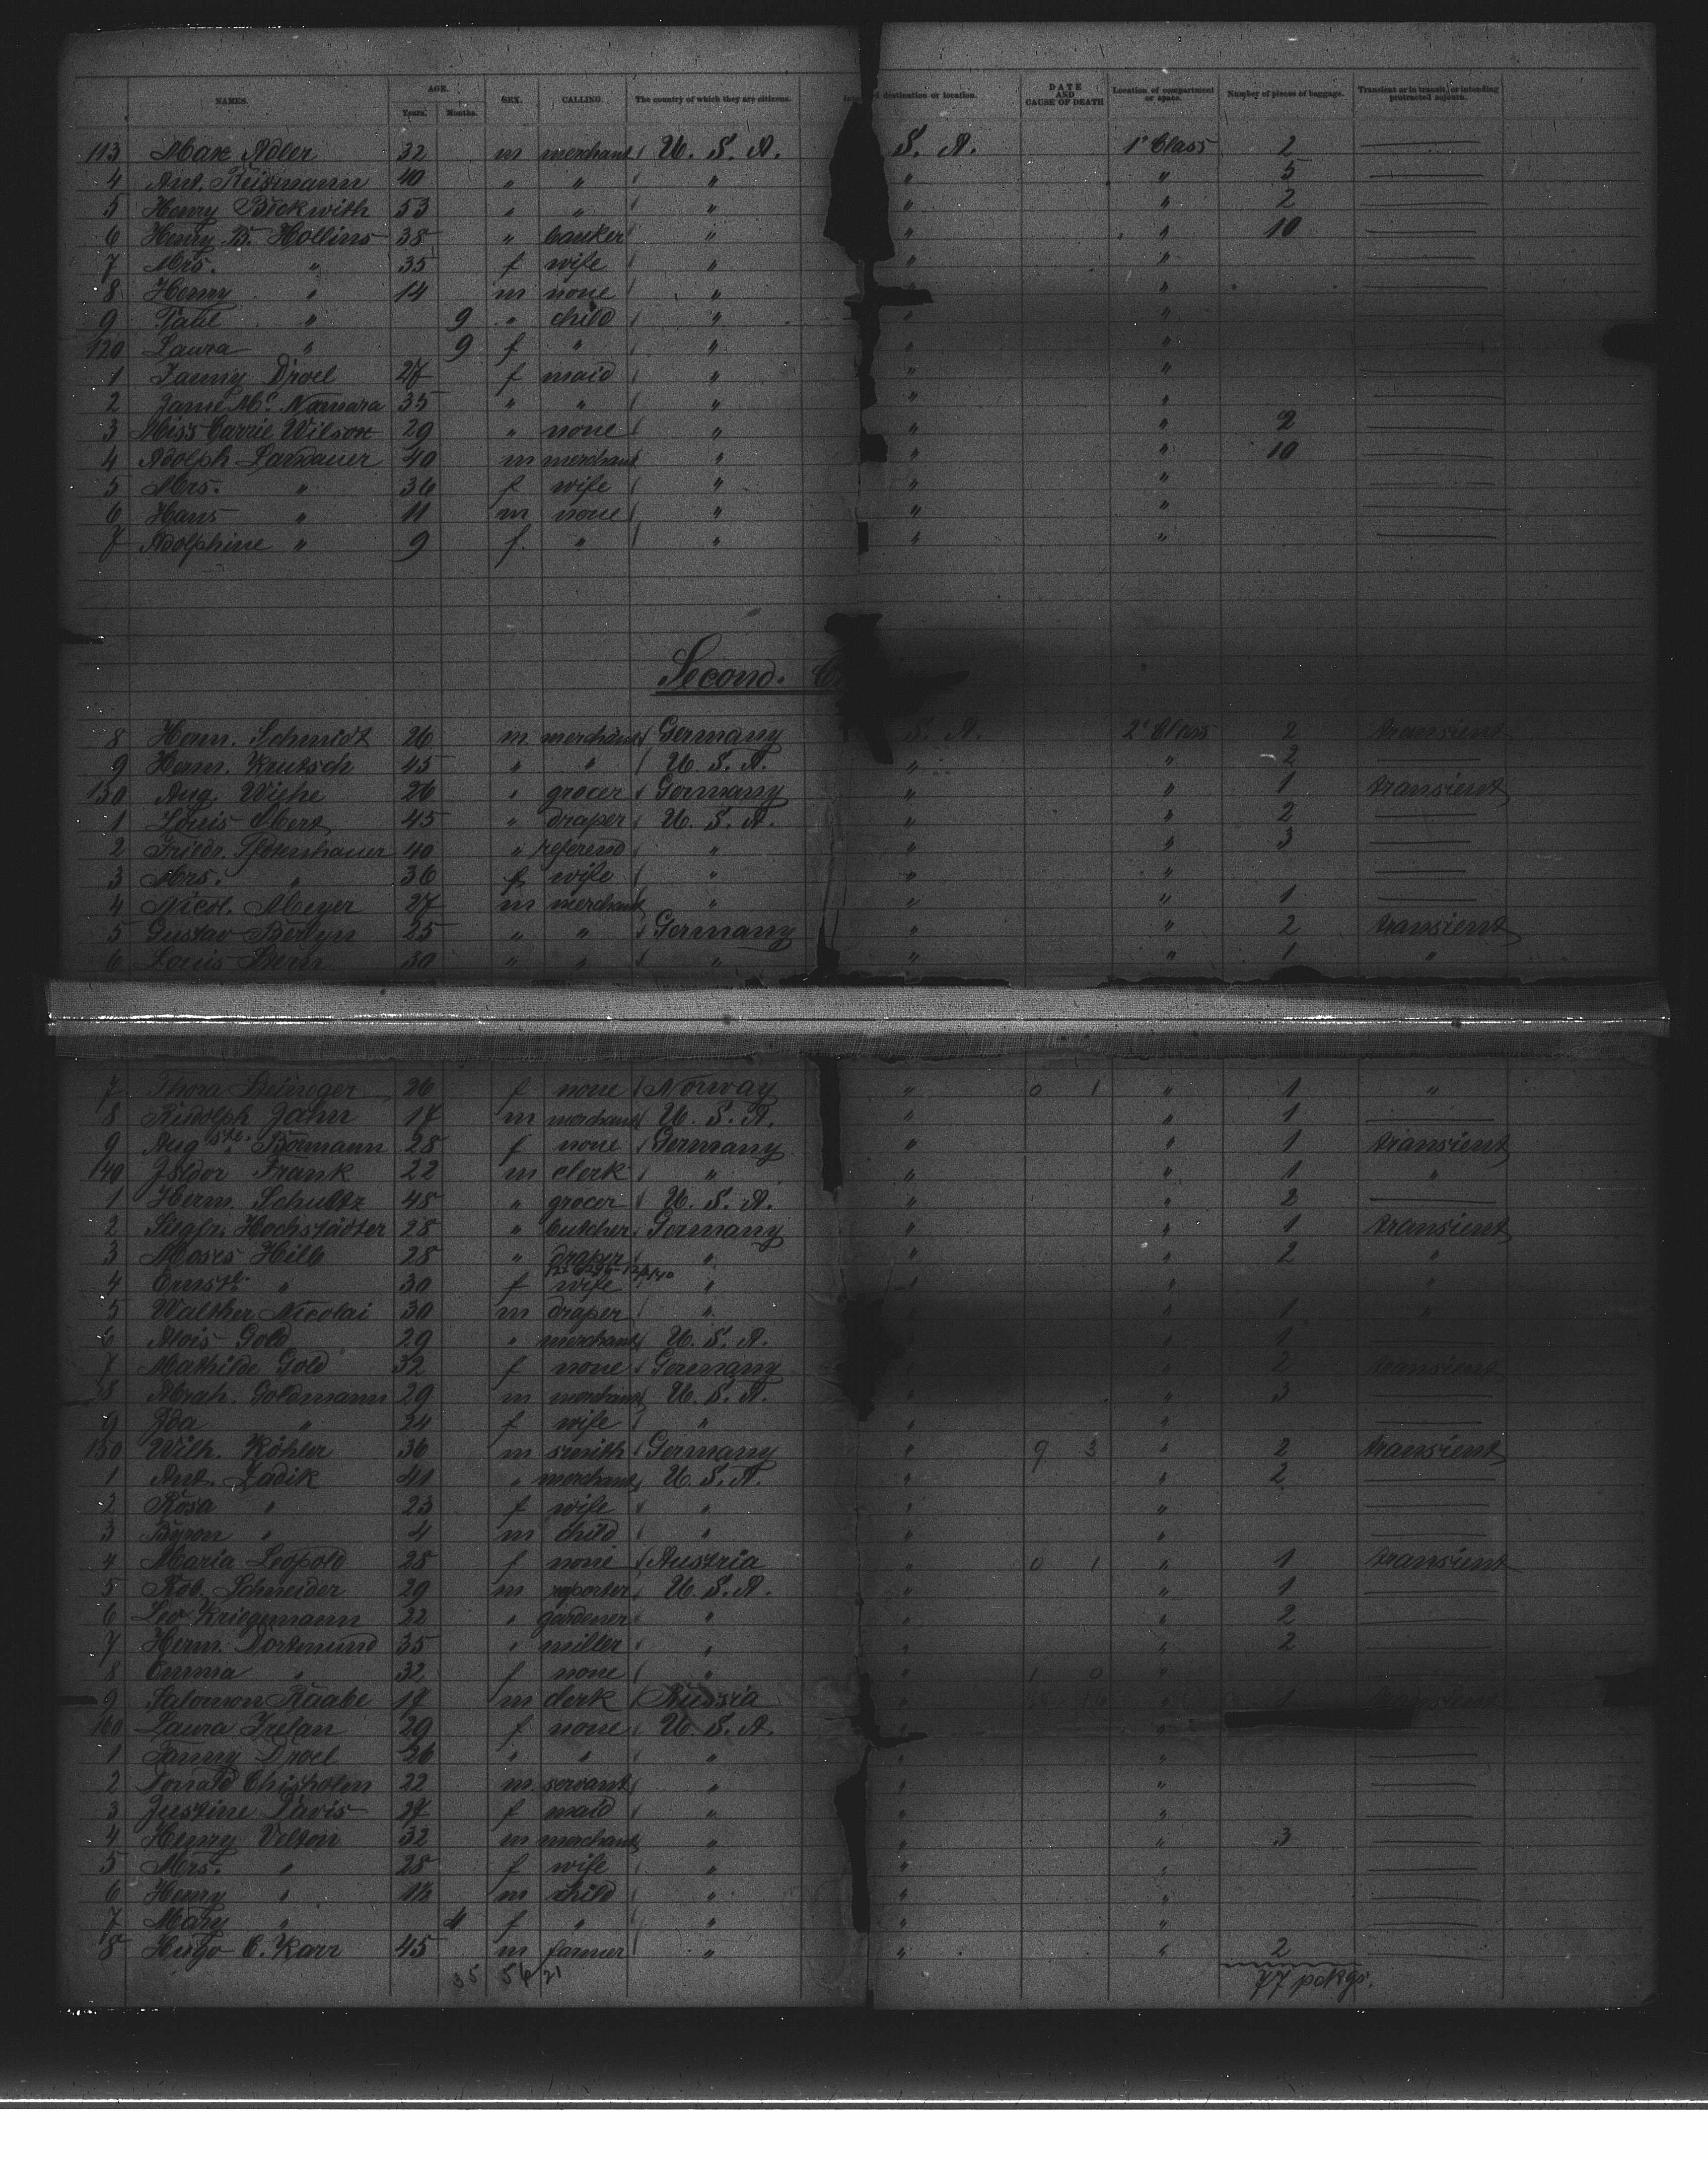 NAMES. AGE. Years. Months. SEX. CALLING. The country of which they are citizens. destination or location. DATE AND CAUSE OF DEATH Location of compartment or space. Number of pieces of baggage. Transient or in transit, or intending protracted sojourn.
113 Max Adler 32 m merchant U. S. A. S. A. 1st Class 2
4 Ant. Reismann 40 " " " " " 5
5 Henry Beckwith 53 " " " " " 2
6 Henry B. Hollins 38 " banker " " " 10
7 Mrs. " 35 f wife " " "
8 Henry " 14 m none " " "
9 Paul " 9 " child " " "
120 Laura " 9 f " " " "
1 Fanny Droel 27 f maid " " "
2 Jane Mc. Namara 35 " " " " "
3 Miss Carrie Wilson 29 " none " " " 2
4 Adolph 40 m merchant " " " 10
5 Mrs. " 36 f wife " " "
6 Hans " 11 m none " " "
7 Adolphine " 9 f " " " "
Second. C
8 Herm. Schmidt 26 m merchant Germany S. A. 2d Class 2 transient
9 Herm. Krutsch 45 " " U. S. A. " " 2
130 Aug. Wiehe 26 " grocer Germany " " 1 transient
1 Louis Ebert 45 " draper U. S. A. " " 2
2 Friedr. Pfotenhauer 40 " referend " " " 3
3 Mrs. " 36 f wife " " "
4 Nicol. Meyer 27 m merchant " " " 1
5 Gustav Berlyn 25 " " Germany " " 2 transient
6 Louis 30 " " " " " 1 "
7 Thora 26 f none Norway " 0 1 " 1 "
8 Rudolph Jahn 17 m merchant U. S. A. " " 1
9 Augste. Bormann 28 f none Germany " " 1 transient
140 Isidor Frank 22 m clerk " " " 1 "
1 Herm. Schultz 48 " grocer U. S. A. " " 2
2 Siegfr. Hochstädter 28 " butcher Germany " " 1 transient
3 Moses Hilb 28 " draper " " " 2 "
4 Ernste. " 30 f wife " " " "
5 Walther Nicolai 30 m draper " " 1 "
6 Alois Gold 29 " merchant U. S. A. 1
7 Mathilde Gold 32 f none Germany " 2 transient
8 Abrah. Goldmann 29 m merchant U. S. A. " " 3
9 Ida " 24 f wife " " "
150 Wilh. Köhler 36 m smith Germany " 9 3 " 2 transient
1 Ant. Zadik 41 " merchant U. S. A. " " 2
2 Rosa " 23 f wife " " "
3 Byron " 4 m child " " "
4 Maria Leopold 28 f none Austria " 0 1 " 1 transient
5 Rob. Schneider 29 m reporter U. S. A. " " 1
6 Leo Kriegsmann 22 " gardener " " " 2
7 Herm. Dortmund 35 " miller " " " 2
8 Emma " 32 f none " " 1 0 "
9 Salomon Raabe 17 m clerk Russia " 1 transient
160 Laura Irelan 29 f none U. S. A. " "
1 Fanny Droel 26 " " " " "
2 Donald Chisholm 22 m servant " " "
3 Justine Davis 27 f maid " " "
4 Henry Velten 32 m merchant " " " 3
5 Mrs. " 28 f wife " " "
6 Henry " 1½ m child " " "
7 Mary " 4 f " " " "
8 Hugo C. Karr 45 m farmer " " " 2
77 pckgs.